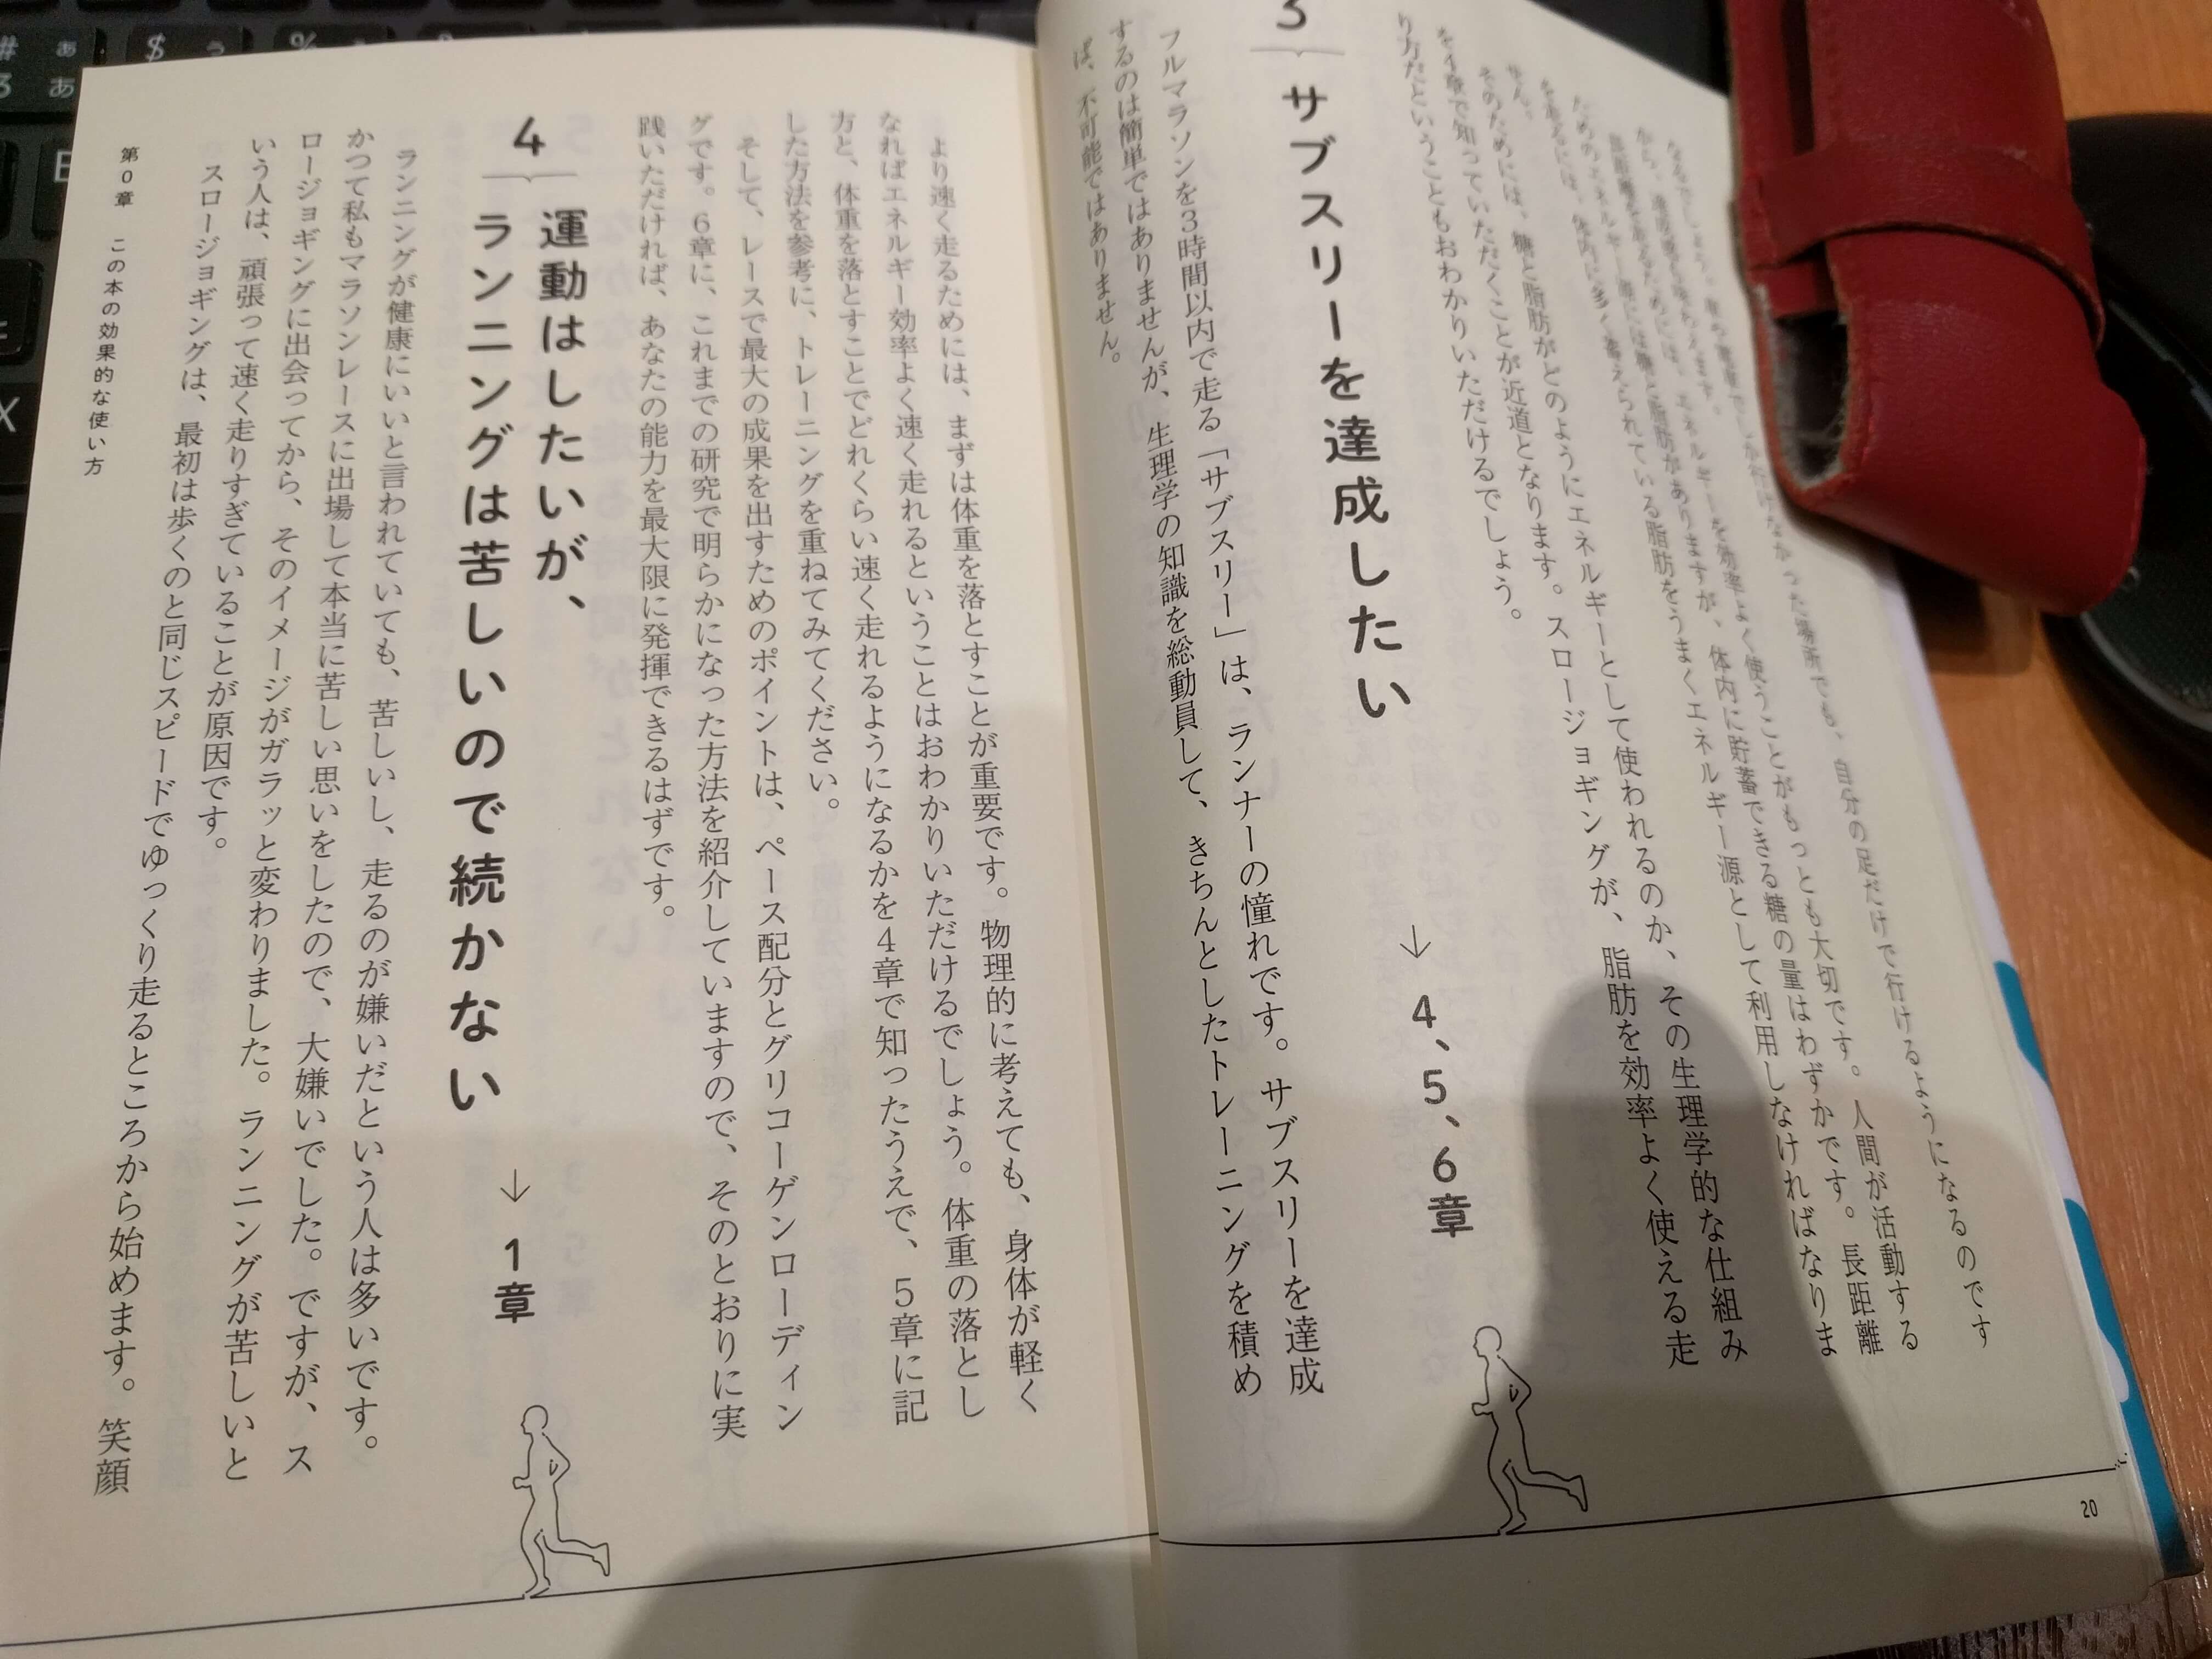 しか行けなかった場所でも、自分の足だけで行けるようになるのです
から、達成感も味わえます。
長距離を走るためには、エネルギーを効率よく使うことがもっとも大切です。人間が活動する
ためのエネルギー源には糖と脂肪がありますが、体内に貯蓄できる糖の量はわずかです。長距離
を走るには、体内に多く蓄えられている脂肪をうまくエネルギー源として利用しなければなりま
せん。
そのためには、糖と脂肪がどのようにエネルギーとして使われるのか、その生理学的な仕組み
章で知っていただくことが近道となります。スロージョギングが、脂肪を効率よく使える走
り方だということもおわかりいただけるでしょう。
3 サブスリーを達成したい → 4、5、6章
フルマラソンを3時間以内で走る「サブスリー」は、ランナーの憧れです。サブスリーを達成
するのは簡単ではありませんが、生理学の知識を総動員して、きちんとしたトレーニングを積め
ば、不可能ではありません。
20
より速く走るためには、まずは体重を落とすことが重要です。物理的に考えても、身体が軽く
なればエネルギー効率よく速く走れるということはおわかりいただけるでしょう。体重の落とし
方と、体重を落とすことでどれくらい速く走れるようになるかを4章で知ったうえで、5章に記
した方法を参考に、トレーニングを重ねてみてください。
そして、レースで最大の成果を出すためのポイントは、ペース配分とグリコーゲンローディン
グです。6章に、これまでの研究で明らかになった方法を紹介していますので、そのとおりに実
践いただければ、あなたの能力を最大限に発揮できるはずです。
4 運動はしたいが、
ランニングは苦しいので続かない → 1章
ランニングが健康にいいと言われていても、苦しいし、走るのが嫌いだという人は多いです。
かつて私もマラソンレースに出場して本当に苦しい思いをしたので、大嫌いでした。ですが、ス
ロージョギングに出会ってから、そのイメージがガラッと変わりました。ランニングが苦しいと
いう人は、頑張って速く走りすぎていることが原因です。
スロージョギングは、最初は歩くのと同じスピードでゆっくり走るところから始めます。笑顔
第0章 この本の効果的な使い方
#
3
あ
ぁ
$
う
ぅ
%
E
X